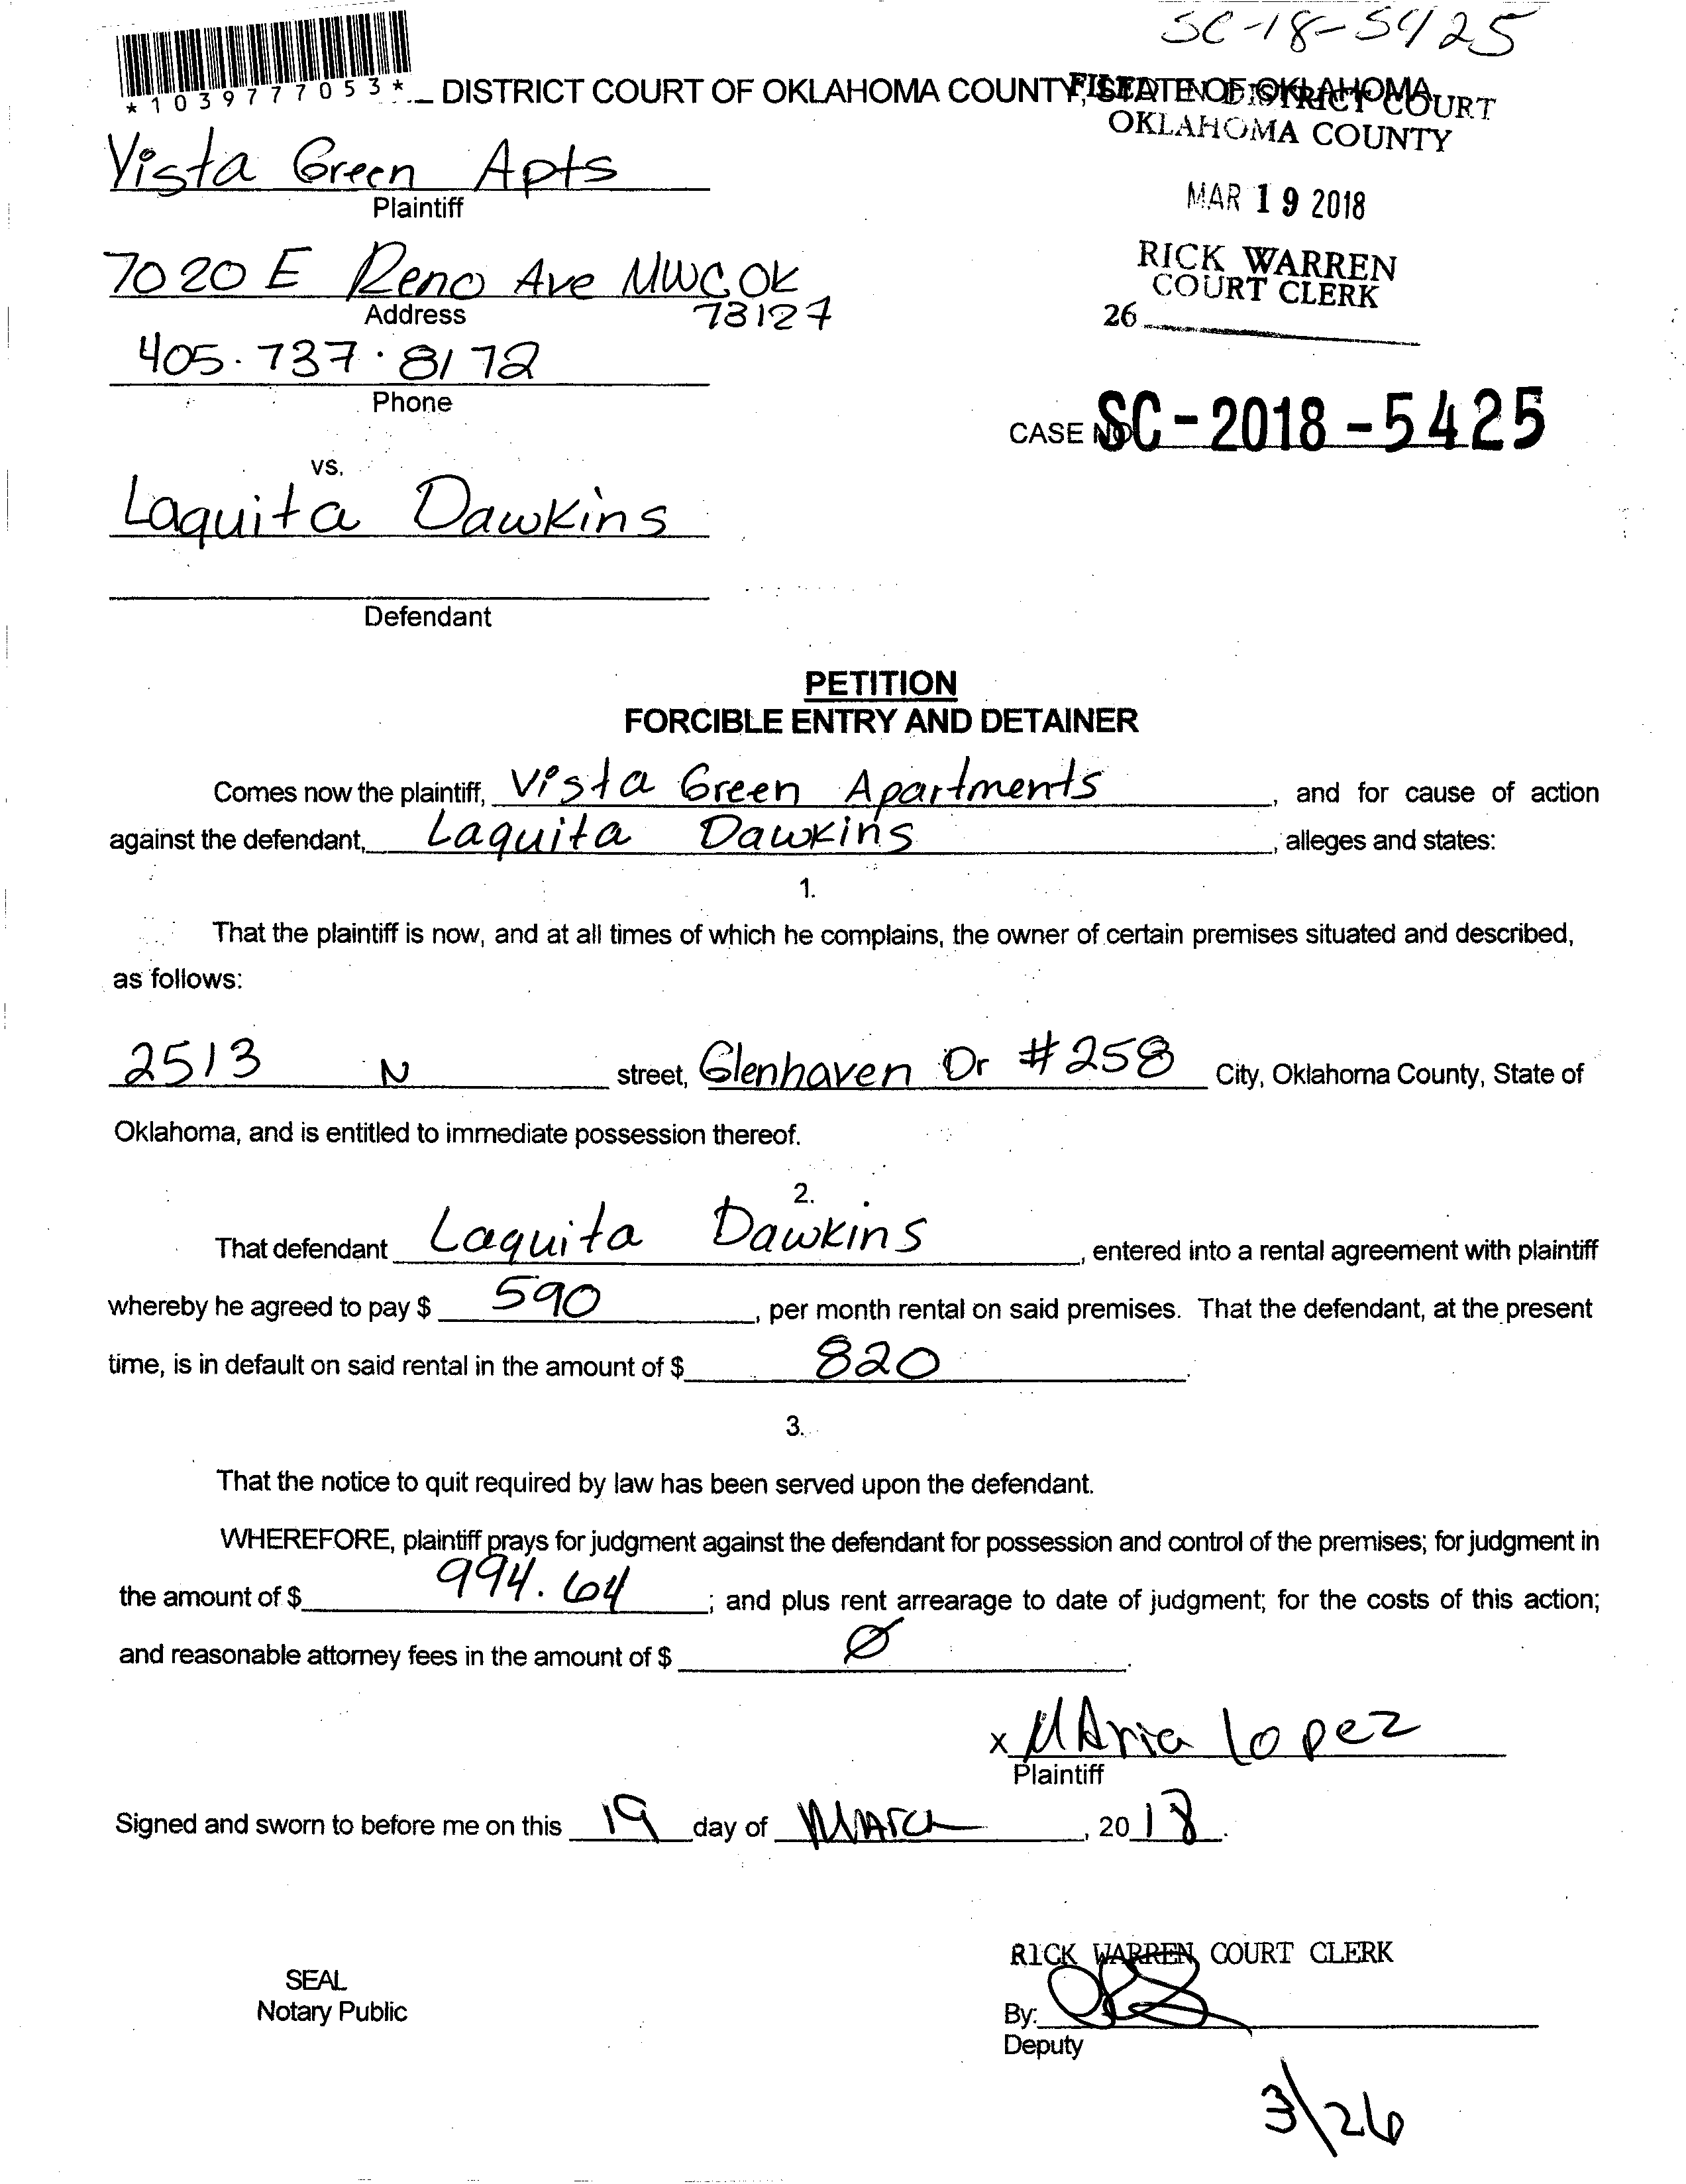 SC-18-5425
*1039777053*
DISTRICT COURT OF OKLAHOMA COUNTY, STATE OF OKLAHOMA
FILED IN DISTRICT COURT
OKLAHOMA COUNTY
Vista Green Apts
Plaintiff
MAR 19 2018
7020 E Reno Ave MWC OK
73127
Address
RICK WARREN
COURT CLERK
26
405.737.8172
Phone
CASE NO SC-2018-5425
vs.
Laquita Dawkins
Defendant
PETITION
FORCIBLE ENTRY AND DETAINER
Comes now the plaintiff, Vista Green Apartments, and for cause of action
against the defendant, Laquita Dawkins, alleges and states:
1.
That the plaintiff is now, and at all times of which he complains, the owner of certain premises situated and described,
as follows:
2513 N street, Glenhaven Dr #258 City, Oklahoma County, State of
Oklahoma, and is entitled to immediate possession thereof.
2.
That defendant Laquita Dawkins, entered into a rental agreement with plaintiff
whereby he agreed to pay $ 590, per month rental on said premises. That the defendant, at the present
time, is in default on said rental in the amount of $ 820.
3.
That the notice to quit required by law has been served upon the defendant.
WHEREFORE, plaintiff prays for judgment against the defendant for possession and control of the premises; for judgment in
the amount of $ 994.64; and plus rent arrearage to date of judgment; for the costs of this action;
and reasonable attorney fees in the amount of $ Ø.
x MAria lopez
Plaintiff
Signed and sworn to before me on this 19 day of MArch, 2018.
RICK WARREN COURT CLERK
SEAL
Notary Public
By:
Deputy
3/26